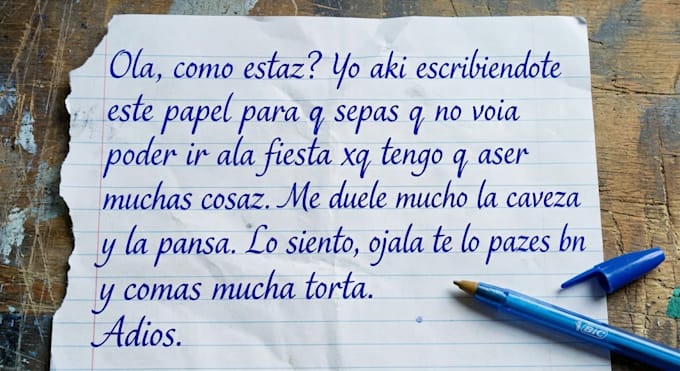 Ola, como estaz? Yo aki escribiendote
este papel para q sepas q no voia
poder ir ala fiesta xq tengo q aser
muchas cosaz. Me duele mucho la caveza
y la pansa. Lo siento, ojala te lo pazes bn
y comas mucha torta.
Adios.
BIC